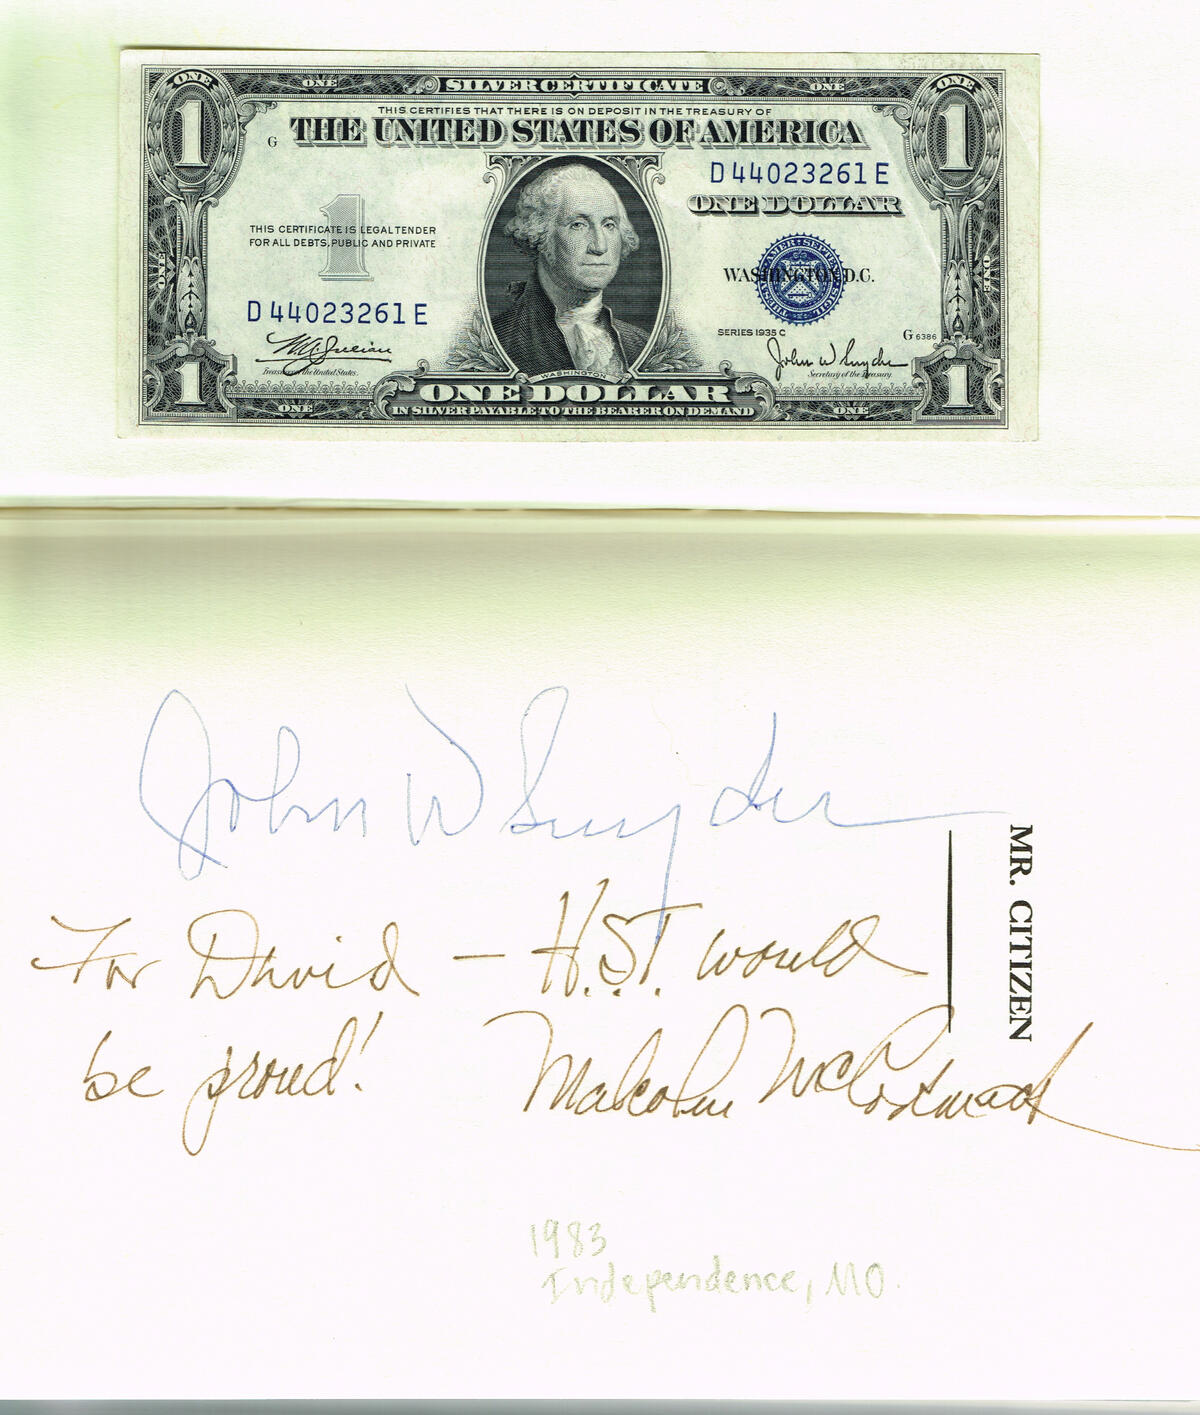 SILVER CERTIFICATE
ONE ONE ONE ONE
THIS CERTIFIES THAT THERE IS ON DEPOSIT IN THE TREASURY OF
THE UNITED STATES OF AMERICA
1 1
G
D 44023261 E
ONE DOLLAR
1
THIS CERTIFICATE IS LEGAL TENDER
FOR ALL DEBTS, PUBLIC AND PRIVATE
ONE ONE
WASHINGTON, D.C.
D 44023261 E
SERIES 1935 C
G 6386
W A Julian
Treasurer of the United States.
John W Snyder
Secretary of the Treasury.
WASHINGTON
1 1
ONE DOLLAR
ONE ONE
IN SILVER PAYABLE TO THE BEARER ON DEMAND
John W Snyder
MR. CITIZEN
For David — H.S.T. would
be proud! Malcolm McCormack
1983
Independence, MO.